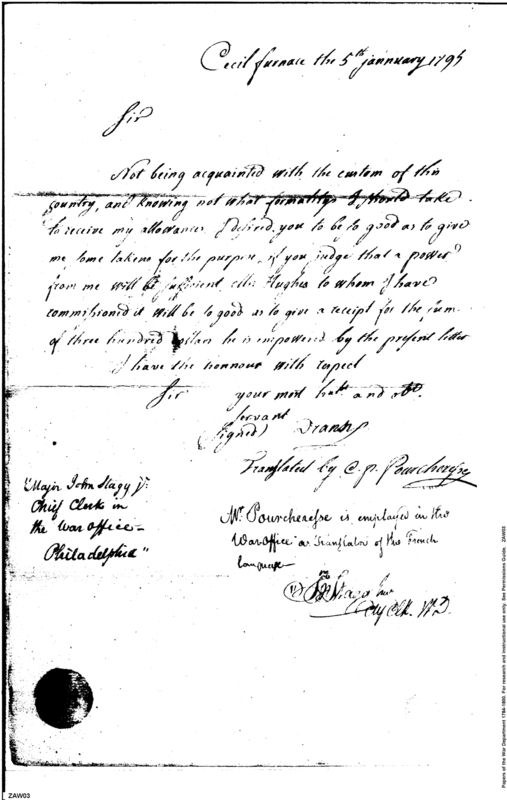 Cecil furnace the 5th jannuary 1795
Sir
Not being acquainted with the custom of this
country, and knowing not what formalitys I should take
to receive my allowance, I desired you to be to good as to give
me some takens for the purpose, if you judge that a power
from me will be sufficient, Mr Hughes to whom I have
commissioned it will be to good as to give a receipt for the sum
of three hundred dollars he is empowered by the present letter
I have the honnour with respect
Sir your most hule and obt.
servant
(signed)
Translated by C. p. Pourcheresse
"Major John Stagg Jr.
Chief Clerk in
the War office –
Philadelphia"
Mr. Pourcheresse is employed in the
War Office as Translator of the French
language –
Jno Stagg Junr
Clk. W.D.
Papers of the War Department 1784-1800. For research and instructional use only. See Permissions Guide. ZAW03
ZAW03